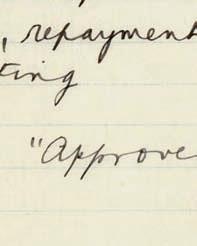 , repayment
ting
"Approve